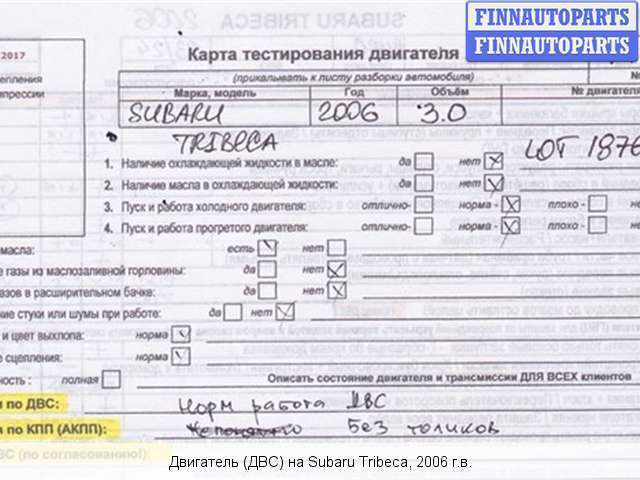 SUBARU TRIBECA 2006
FINNAUTOPARTS
FINNAUTOPARTS
2017
Карта тестирования двигателя
епления
(прикалывать к листу разборки автомобиля)
прессии
Марка, модель Год Объём № двигателя
SUBARU 2006 3.0
TRIBECA LOT 1876
1. Наличие охлаждающей жидкости в масле: да нет
2. Наличие масла в охлаждающей жидкости: да нет
3. Пуск и работа холодного двигателя: отлично- норма - плохо - не
4. Пуск и работа прогретого двигателя: отлично- норма - плохо - не
масла: есть нет
е газы из маслозаливной горловины: да нет
азов в расширительном бачке: да нет
ние стуки или шумы при работе: да нет
и цвет выхлопа: норма
е сцепления: норма
ность : полная Описать состояние двигателя и трансмиссии ДЛЯ ВСЕХ клиентов
и по ДВС: норм работа ДВС
я по КПП (АКПП): без толчков
ВС (по согласованию!):
Двигатель (ДВС) на Subaru Tribeca, 2006 г.в.